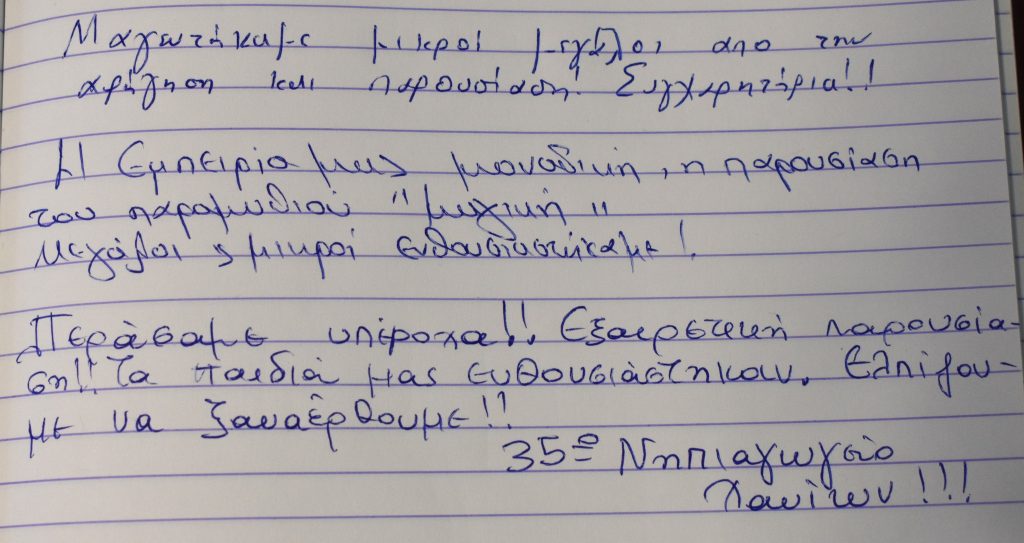 Μαγευτήκαμε μικροί μεγάλοι από την
αφήγηση και παρουσίαση! Συγχαρητήρια!!
Η Εμπειρία μας μοναδική, η παρουσίαση
του παραμυθιού "μαγική"
Μεγάλοι & μικροί ενθουσιαστήκαμε!
Περάσαμε υπέροχα!! Εξαιρετική παρουσία-
ση!! Τα παιδιά μας ενθουσιάστηκαν. Ελπίζου-
με να ξαναέρθουμε!!
35º Νηπιαγωγείο
Χανίων!!!